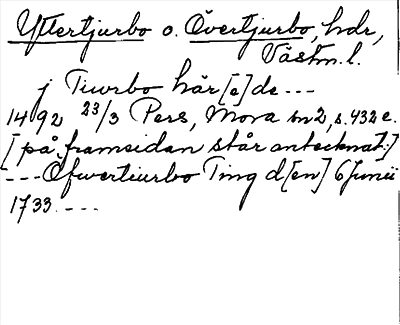 Yttertjurbo o. Övertjurbo, hdr,
Västm. l.
j Tiwrbo här[e]de ---
1492 23/3 Pers, Mora m2, s. 432 e.
[på framsidan står antecknat:]
--- Öfwertiurbo Ting d[en] 6 Junii
1733. ---